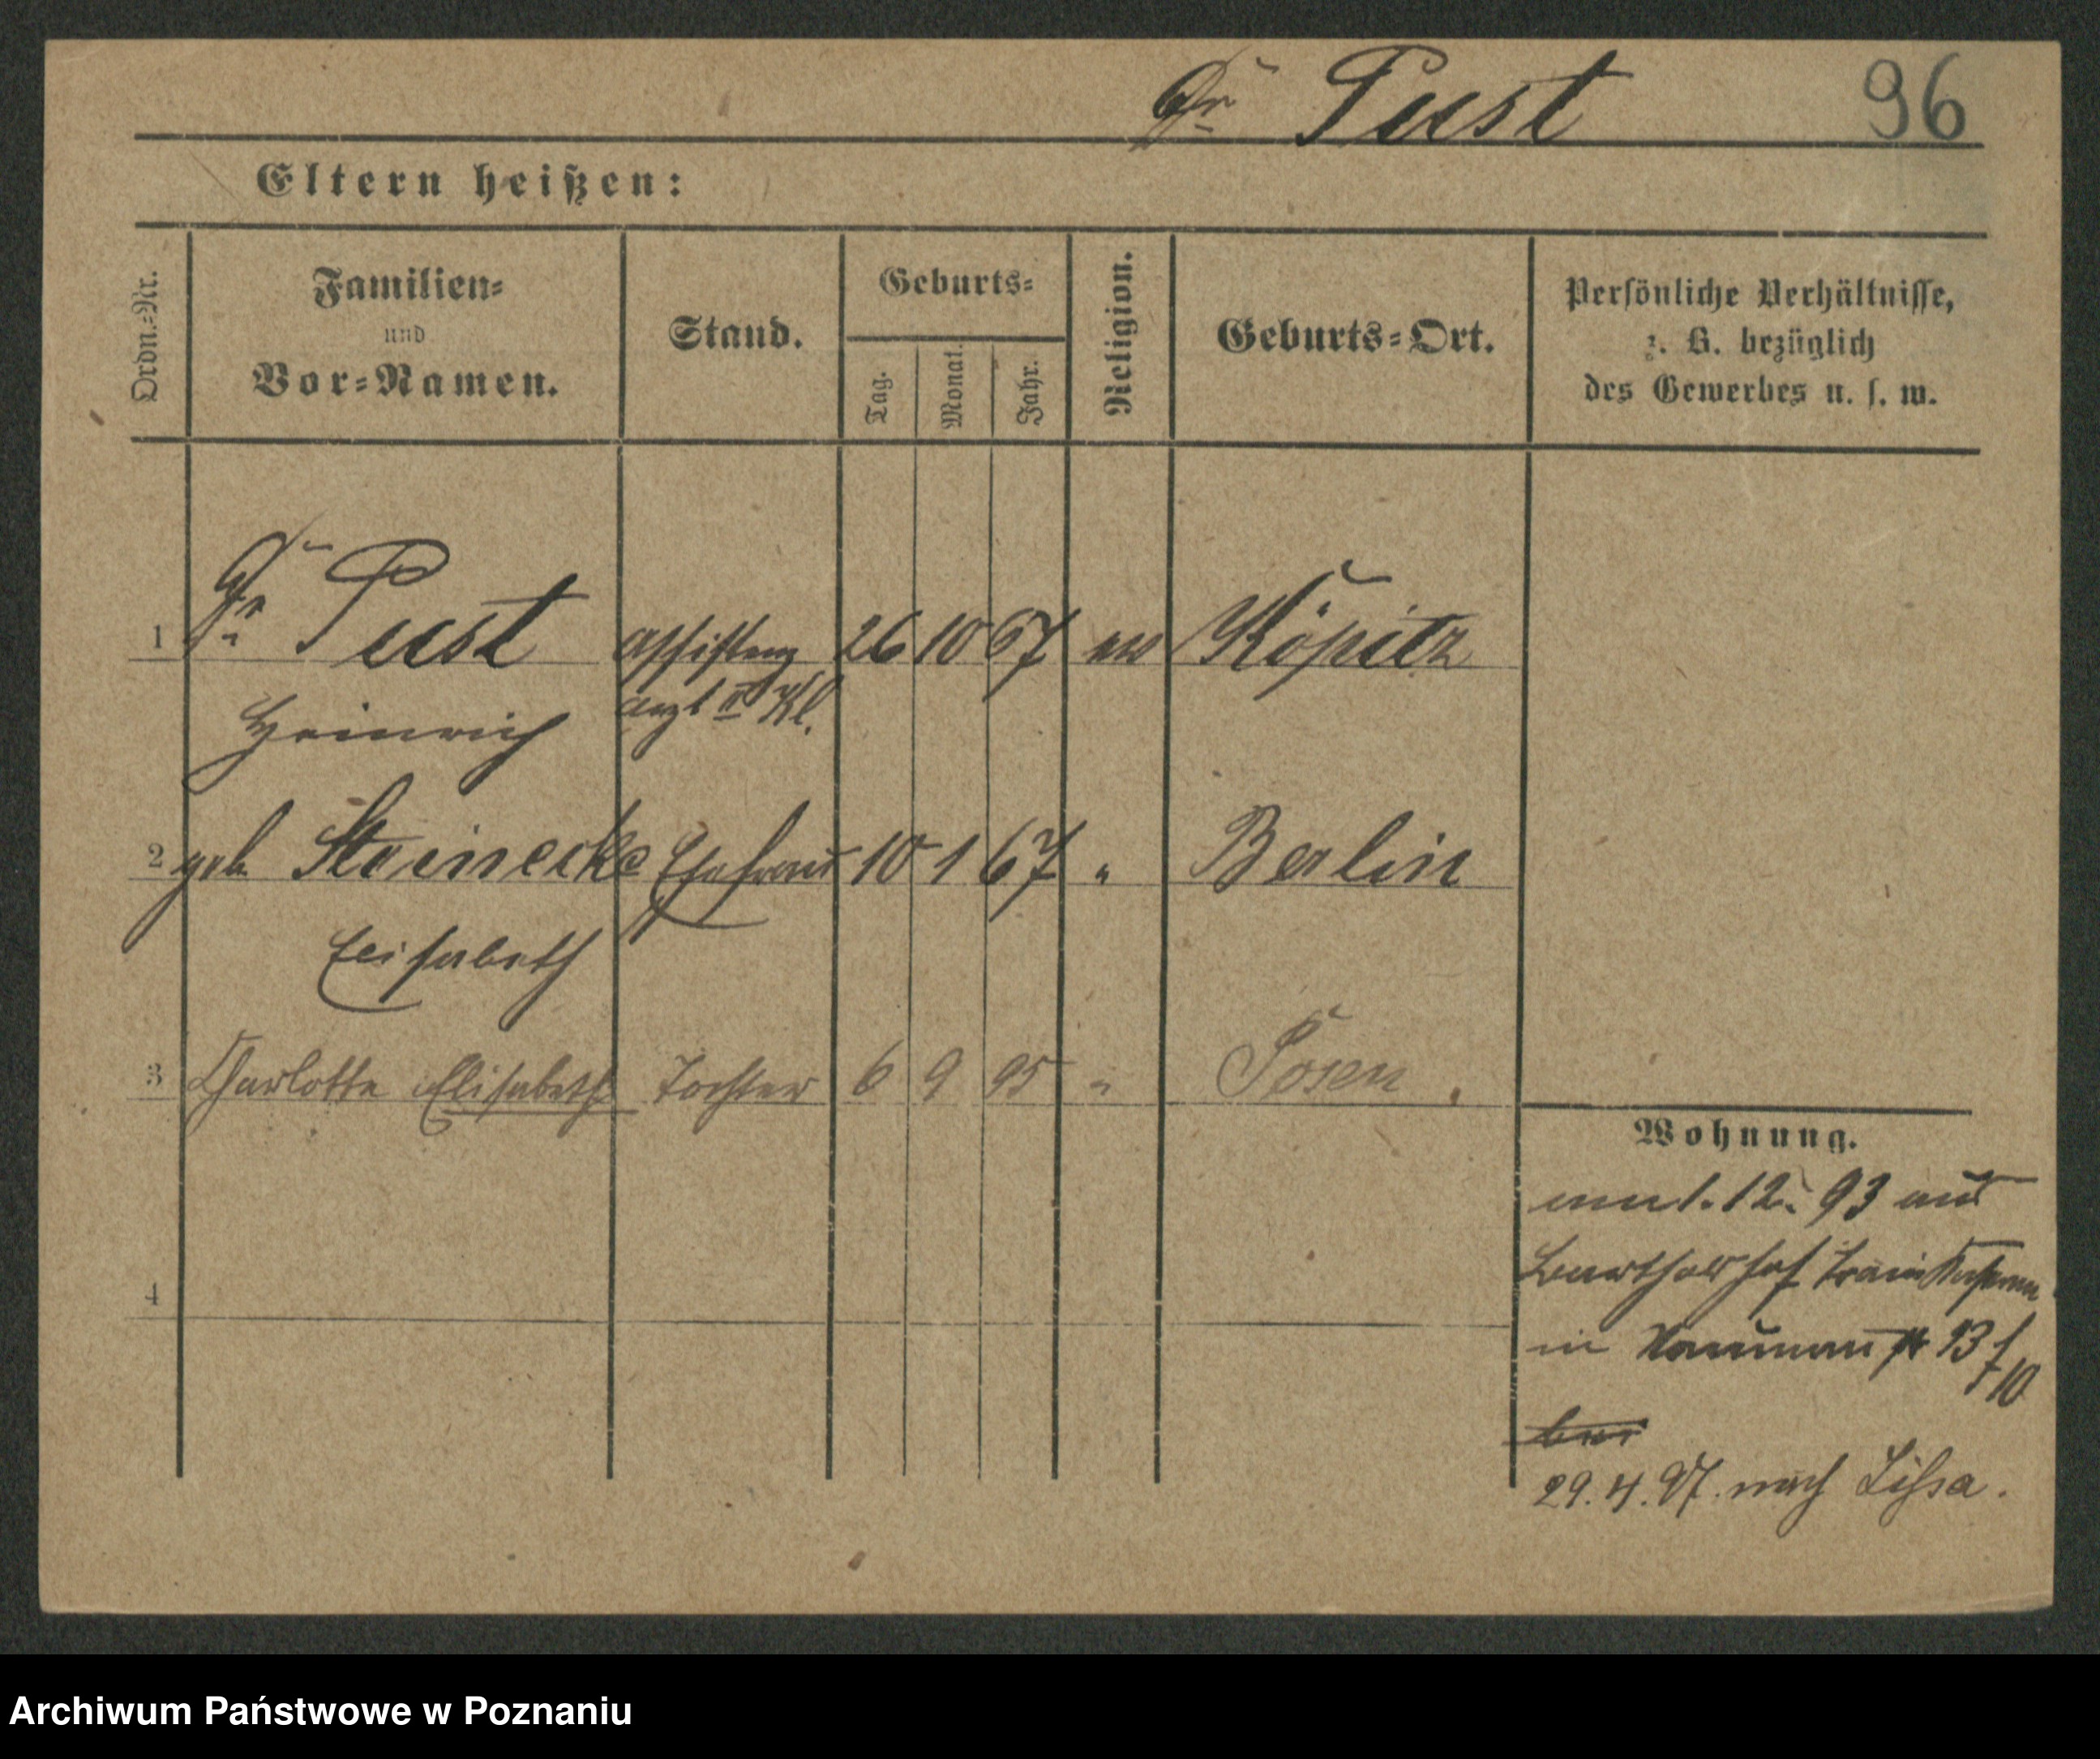 Dr Pust 96
Eltern heißen:
Ordn.-Nr.
Familien-
und
Vor-Namen.
Stand.
Geburts-
Tag.
Monat.
Jahr.
Religion.
Geburts-Ort.
Persönliche Verhältnisse,
z. B. bezüglich
des Gewerbes u. s. w.
1 Dr Pust Assistenz 26 10 67 ev Köpitz
Heinrich arzt II Kl.
2 geb. Steinecke Ehefrau 10 1 67 " Berlin
Elisabeth
3 Charlotte Elisabeth Tochter 6 9 95 " Posen.
4
Wohnung.
1. 12. 93 aus
Train Kaserne
in Naumann str 13 1/10
bei
29. 4. 97. nach Lissa.
Archiwum Państwowe w Poznaniu